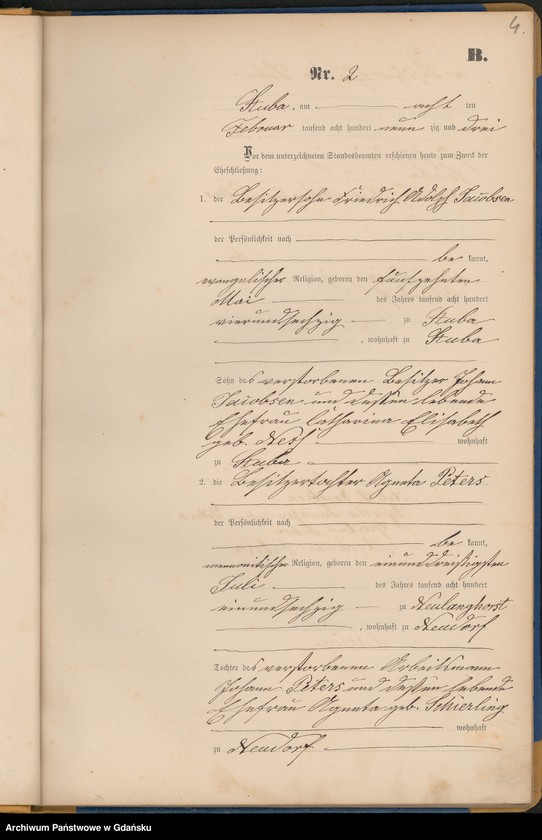 4.
B.
Nr. 2
Stuba, am acht ten
Februar tausend acht hundert neun zig und drei
Vor dem unterzeichneten Standesbeamten erschienen heute zum Zweck der
Eheschließung:
1. der Besitzersohn Friedrich Adolph Jacobsen
der Persönlichkeit nach
be kannt,
evangelischer Religion, geboren den fünfzehnten
Mai des Jahres tausend acht hundert
vierundsechzig zu Stuba
, wohnhaft zu Stuba
Sohn des verstorbenen Besitzer Johann
Jacobsen und dessen lebende
Ehefrau Catharina Elisabeth
geb. wohnhaft
zu Stuba
2. die Besitzertochter Agneta Peters
der Persönlichkeit nach
be kannt,
mennonitischer Religion, geboren den einunddreißigsten
Juli des Jahres tausend acht hundert
einundsechzig zu Neulanghorst
, wohnhaft zu Neudorf
Tochter des verstorbenen Arbeitsmann
Johann Peters und dessen lebende
Ehefrau Agneta geb. Schierling
wohnhaft
zu Neudorf
Archiwum Państwowe w Gdańsku